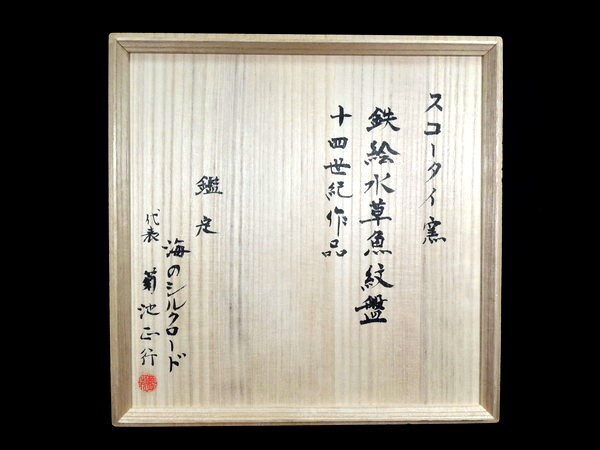 スコータイ窯
鉄絵水草魚紋盤
十四世紀作品
鑑定
海のシルクロード
代表 菊池正行